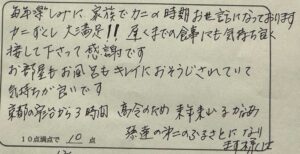 毎年楽しみに、家族でカニの時期お世話になっております
カニずくし大満足!! 遅くまでの食事にも気持ち良く
接して下さって感謝です
お部屋もお風呂もキレイにおそうじされていて
気持ちが良いです
京都の宮津から3時間 高令のため 来年来れるかなあ
10点満点で 10 点
第のふるさとになり
ます様に